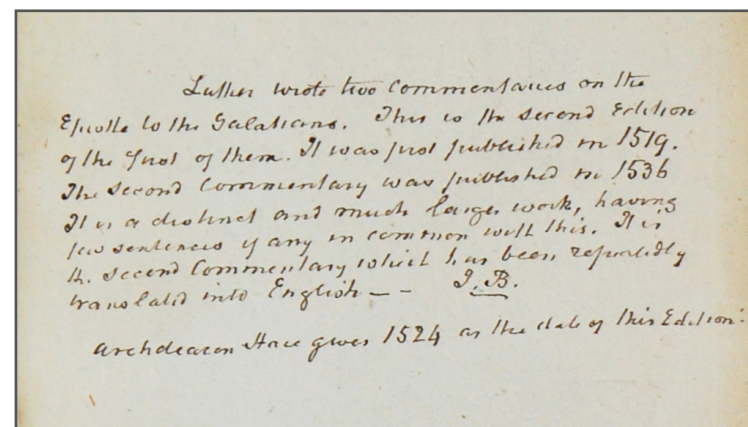 Luther wrote two Commentaries on the
Epistle to the Galatians. This is the second Edition
of the first of them. It was first published in 1519.
The second Commentary was published in 1536
It is a distinct and much larger work, having
few sentences if any in common with this. It is
the second Commentary which has been repeatedly
translated into English — — J. B.
Archdeacon Hare gives 1524 as the date of this Edition.